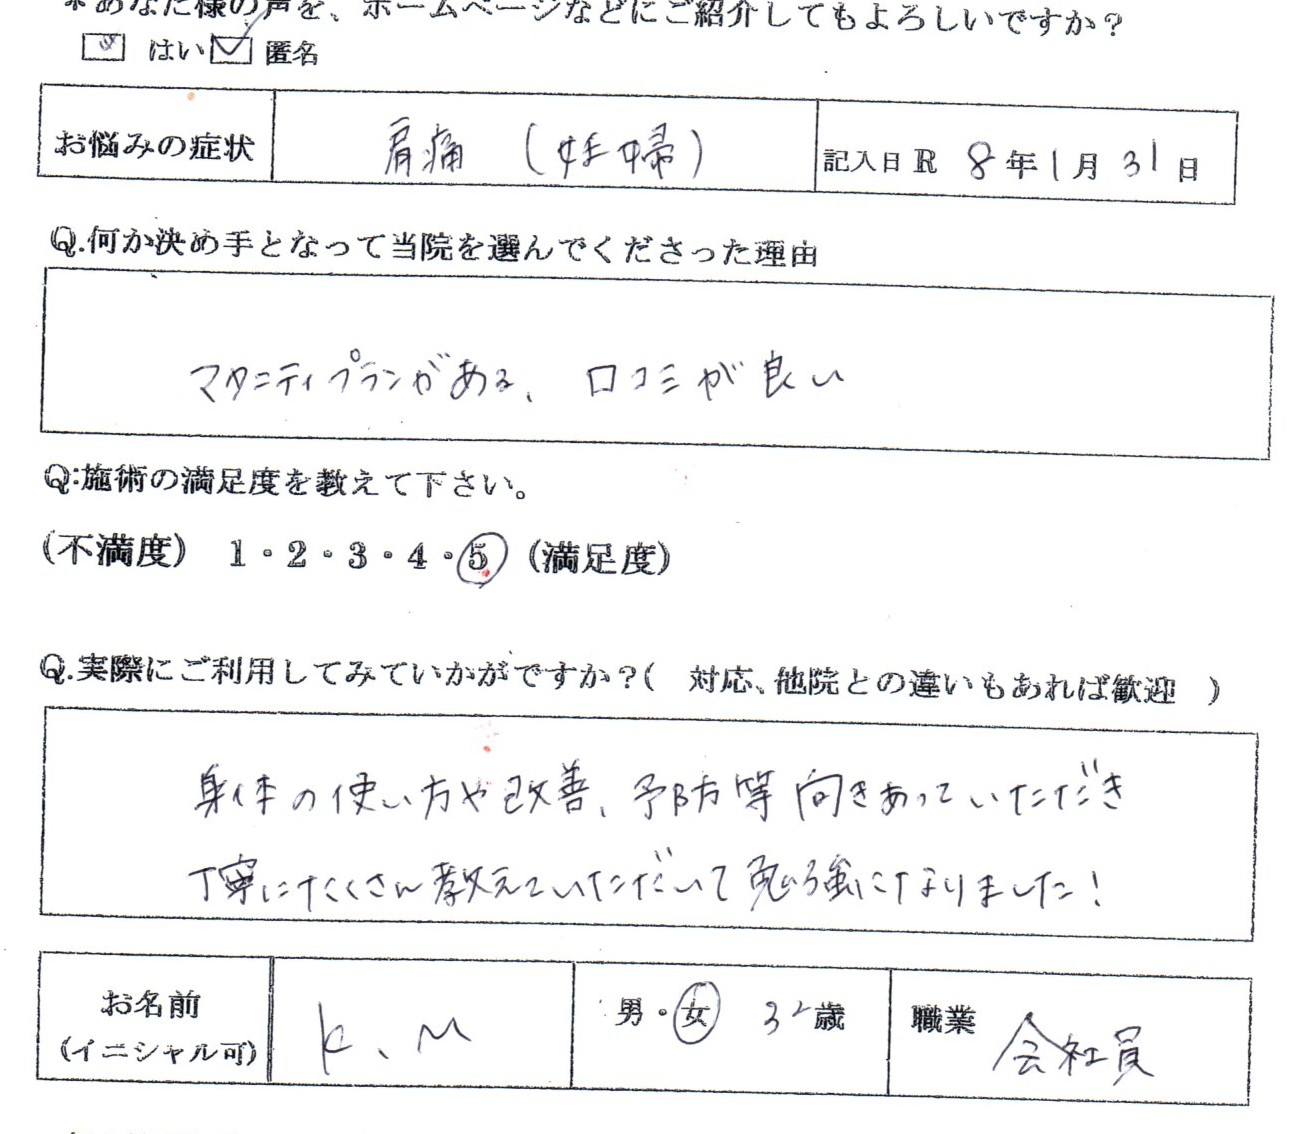 ＊あなた様の声を、ホームページなどにご紹介してもよろしいですか？
はい 匿名
お悩みの症状 肩痛 (妊婦) 記入日 R 8年1月31日
Q.何か決め手となって当院を選んでくださった理由
マタニティプランがある、口コミが良い
Q:施術の満足度を教えて下さい。
(不満度) 1・2・3・4・5 (満足度)
Q.実際にご利用してみていかがですか？( 対応、他院との違いもあれば歓迎 )
身体の使い方や改善、予防等向きあっていただき
丁寧にたくさん教えていただいて勉強になりました！
お名前 K、M 男・女 32歳 職業 会社員
(イニシャル可)